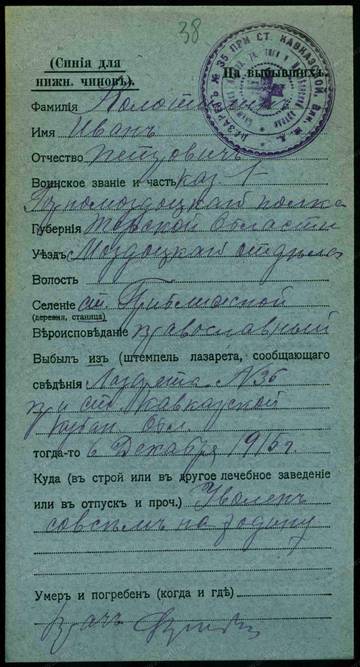 38
(Синія для
нижн. чиновъ).
На выбывшихъ.
Фамилія
Имя Иванъ
Отчество Петровичъ
Воинское званіе и часть каз. 1
Горномоздоцкаго полка
Губернія Терской Области
Уѣздъ Моздоцкаго отдѣла
Волость
Селеніе ст. Приближной
(деревня, станица)
Вѣроисповѣданіе православный
Выбылъ изъ (штемпель лазарета, сообщающаго
свѣдѣнія Лазарета N 35
при ст. Кавказской
Кубан. Обл.
тогда-то 6 Декабря 1915 г.
Куда (въ строй или въ другое лечебное заведеніе
или въ отпускъ и проч.) Уволенъ
совсѣмъ на родину
Умеръ и погребенъ (когда и гдѣ)
Врачъ